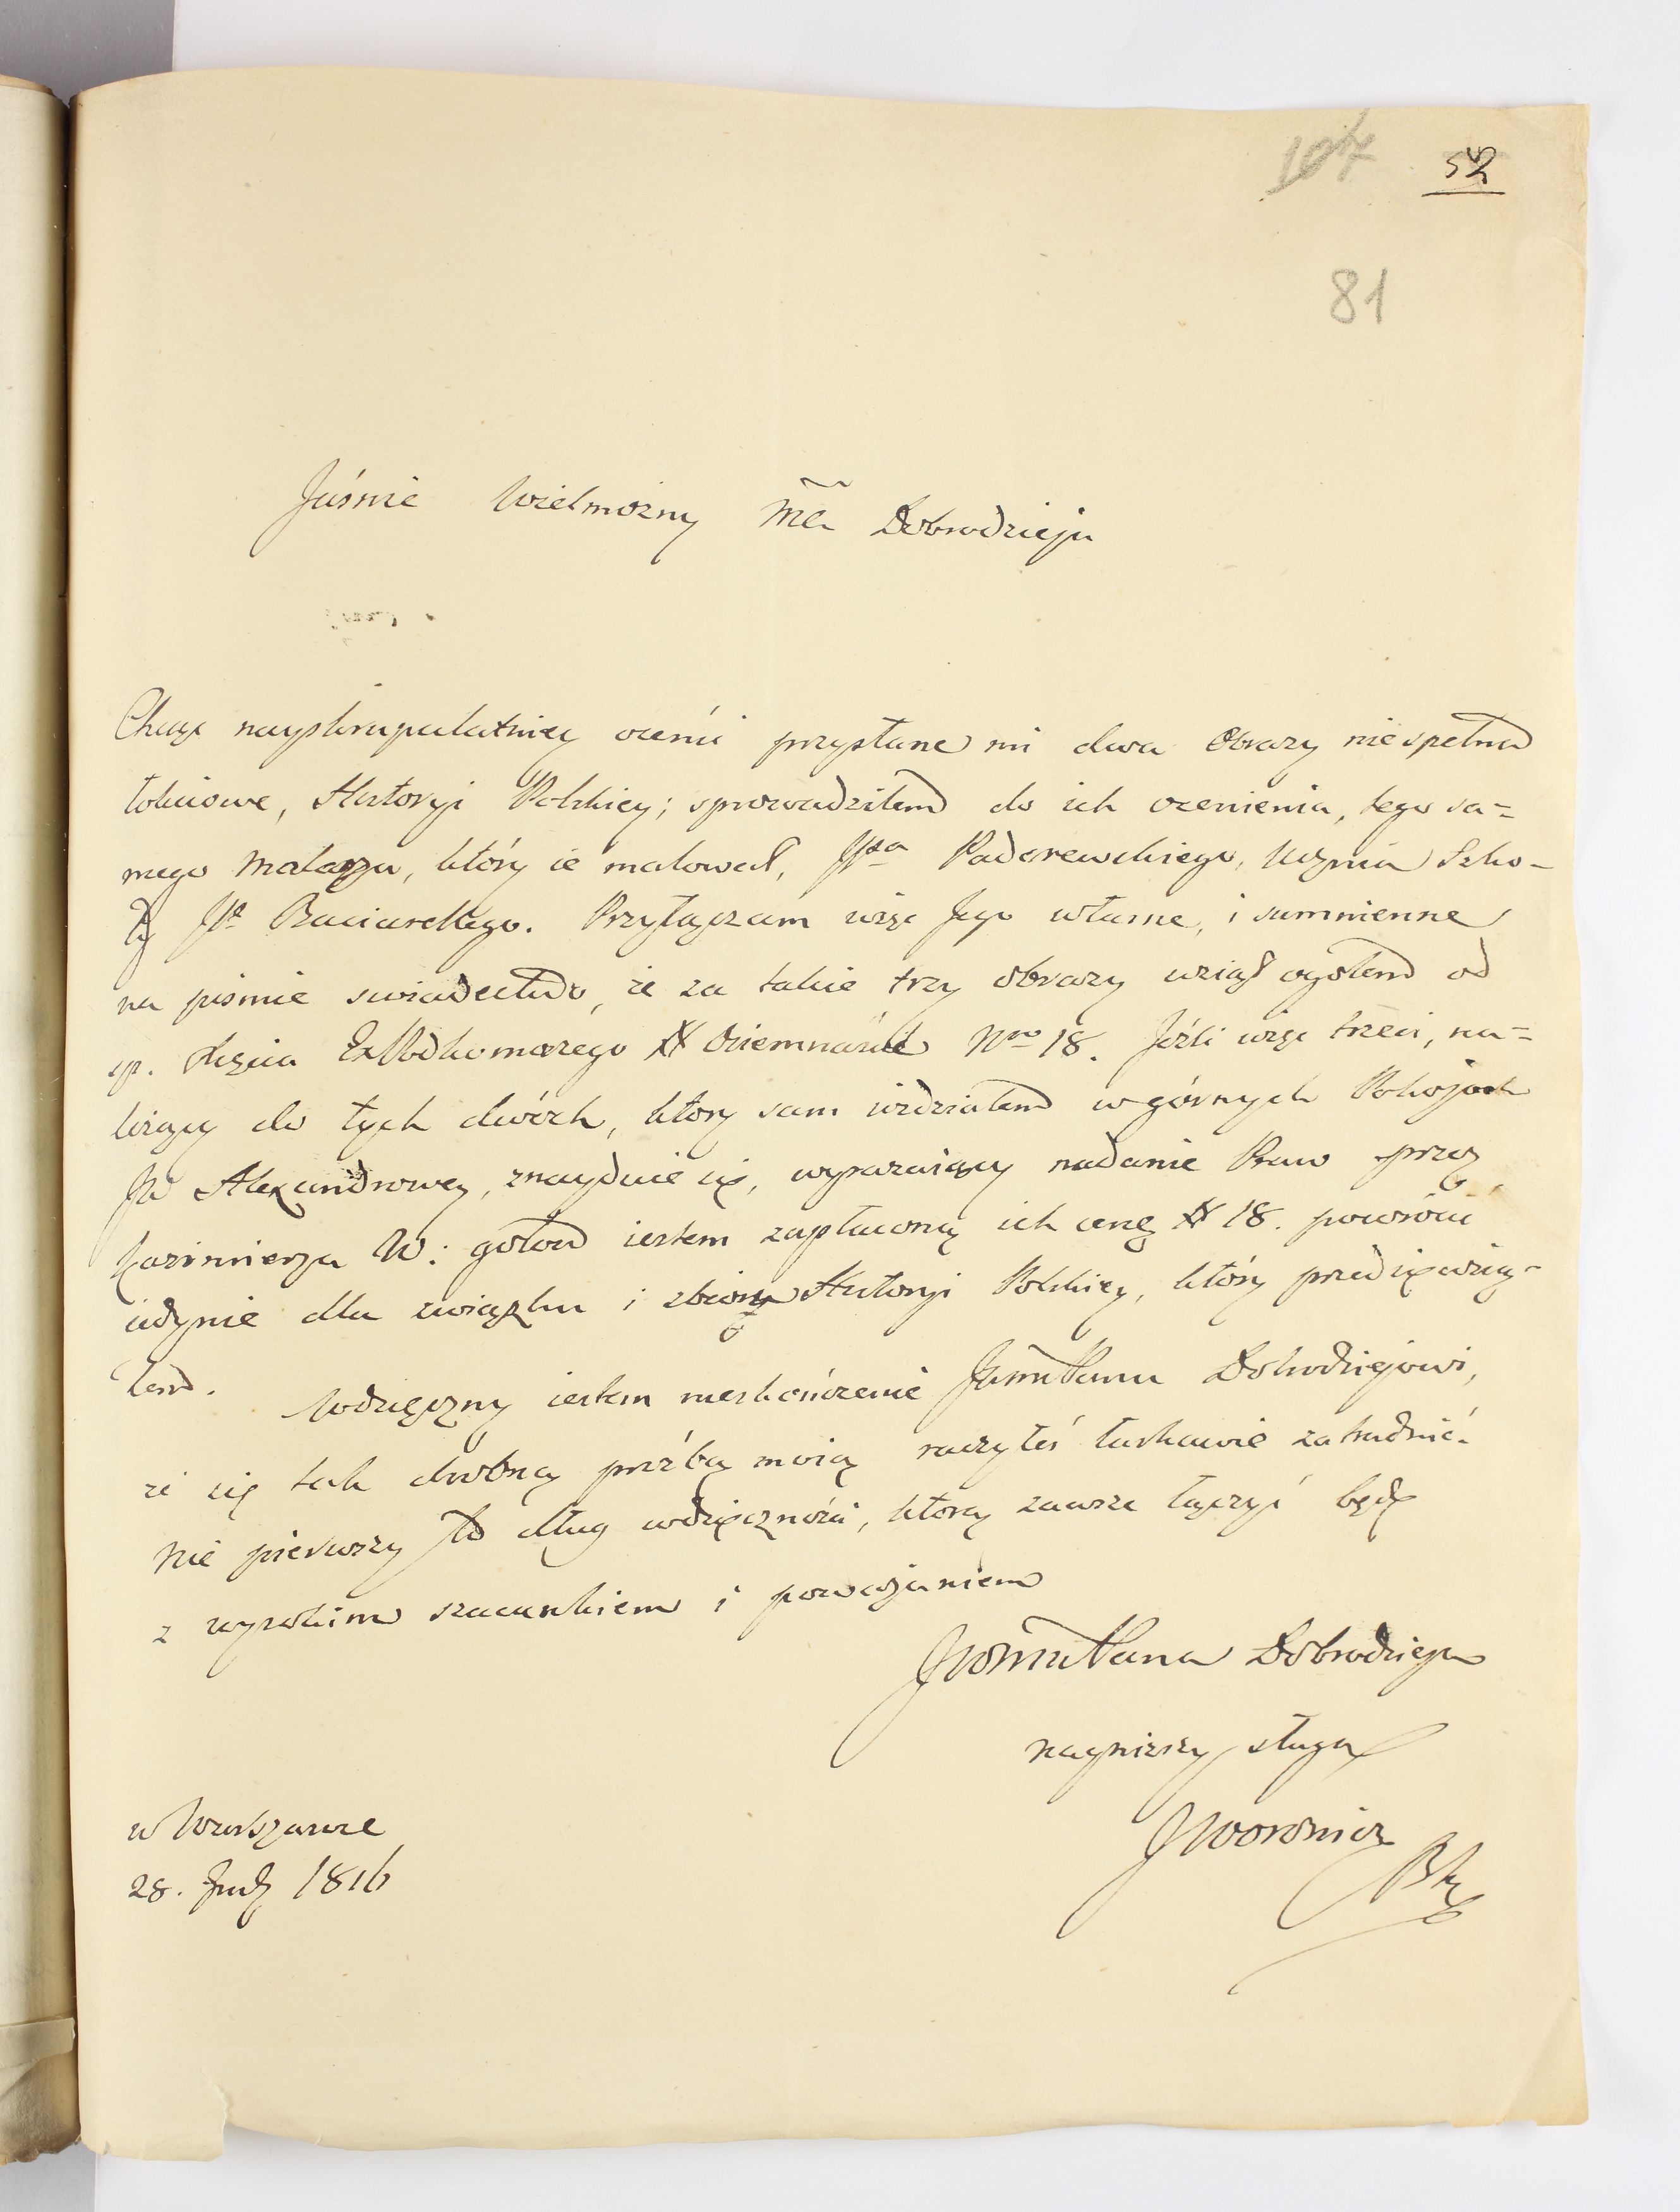 107 52
81
Jaśnie Wielmożny Mci Dobrodzieju
Chcąc nayskrupulatniey ocenić przysłane mi dwa Obrazy niespełna
łokciowe, Historyi Polskiey; sprowadziłem do ich ocenienia, tego sa=
mego Malarza, który ie malował, JPa Paderewskiego, Ucznia Szko-
ły JP Baciarellego. Przyłączam więc Jego własne, i sumnienne
na piśmie swiadectwo, że za takie trzy obrazy wziął ogołem od
sp. Xięcia ExPodkomorzego # Ośiemnaście Nro 18. Jeźli więc trzeci, na=
leżący do tych dwóch, ktory sam widziałem w górnych Pokojach
JW Alexandrowey, znayduie się, wyrażaiący nadanie Praw przez
Kazimierza W: gotow iestem zapłaconą ich cenę # 18. powrócić
iedynie dla związku i zbioru Historyi Polskiey, który przedsięwzią-
łem.
Wdzięczny iestem nieskończenie JWmu Panu Dobrodziejowi,
że się tak drobną proźbą moią raczyłeś łaskawie zatrudnić.
Nie pierwszy to dług wdzięcznośći, ktory zawsze łączyć będę
z wysokim szacunkiem i poważaniem
JWomu Pana Dobrodzieja
nayniższy sługa
JWoronicz
w Warszawie
28. July 1816